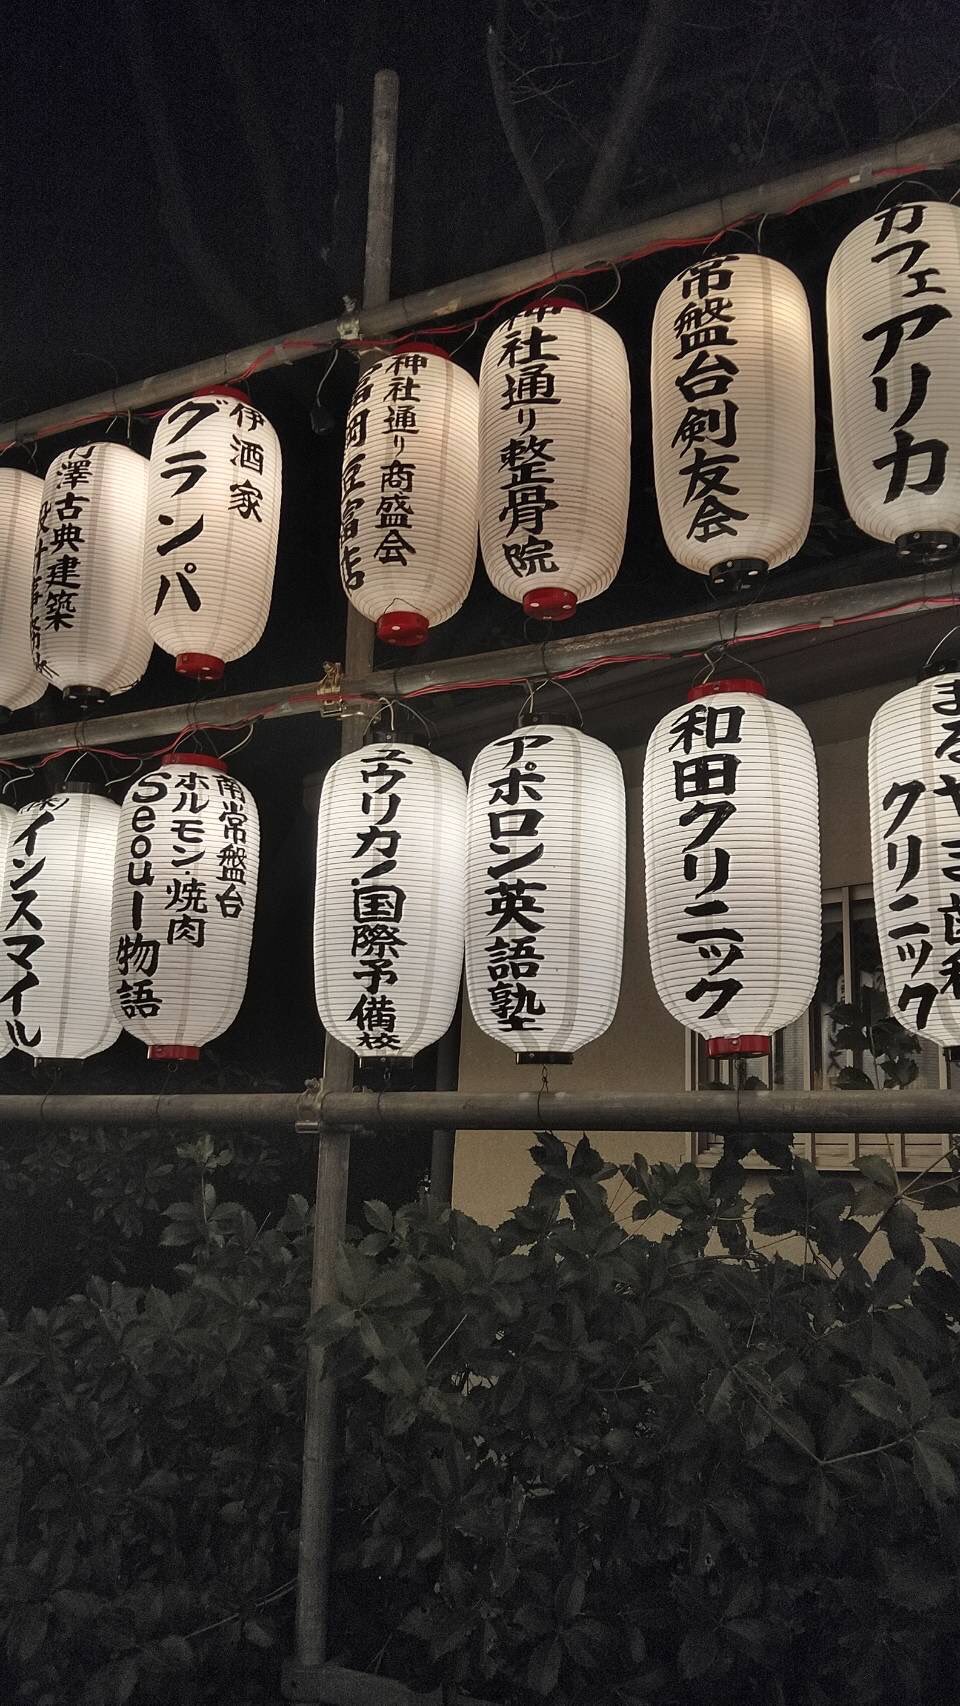 カフェアリカ
常盤台剣友会
神社通り整骨院
神社通り商盛会
富岡豆富店
伊酒家
グランパ
澤古典建築
まるやま歯科
クリニック
和田クリニック
アポロン英語塾
ユウリカ国際予備校
南常盤台
ホルモン・焼肉
Seoul物語
インスマイル